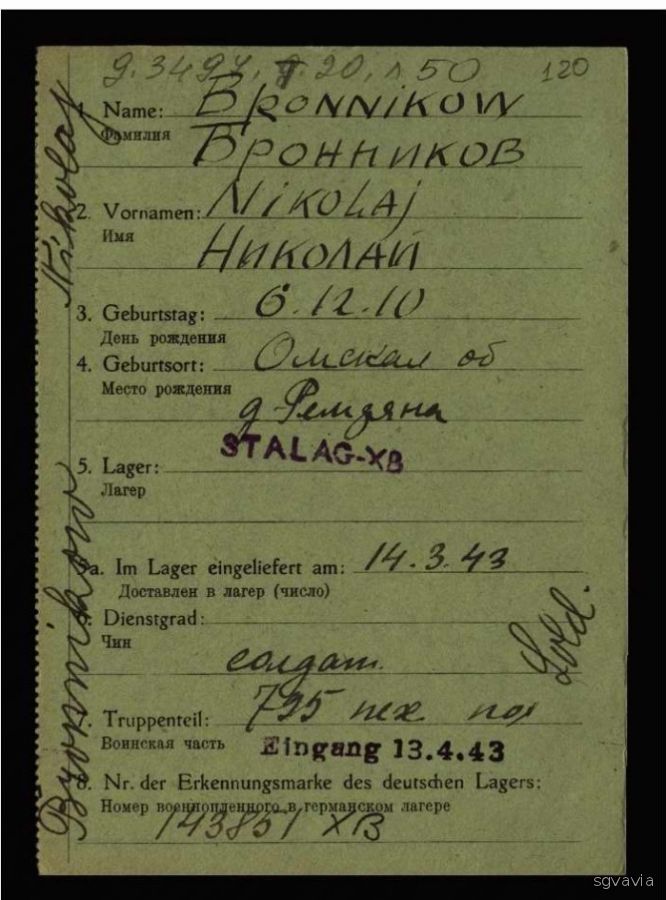 д. 3497, т. 20, л 50 120
1. Name: Bronnikow
Фамилия Бронников
2. Vornamen: Nikolaj
Имя Николай
3. Geburtstag: 6.12.10
День рождения
4. Geburtsort: Омская об
Место рождения
д-Ремзяна
STALAG-XB
5. Lager:
Лагер
5a. Im Lager eingeliefert am: 14.3.43
Доставлен в лагер (число)
6. Dienstgrad:
Чин
солдат. Sold.
7. Truppenteil: 795 пех пол
Воинская часть Eingang 13.4.43
8. Nr. der Erkennungsmarke des deutschen Lagers:
Номер военнопленного в германском лагере
143851 XB
Bronnikow Nikolaj
sgvavia